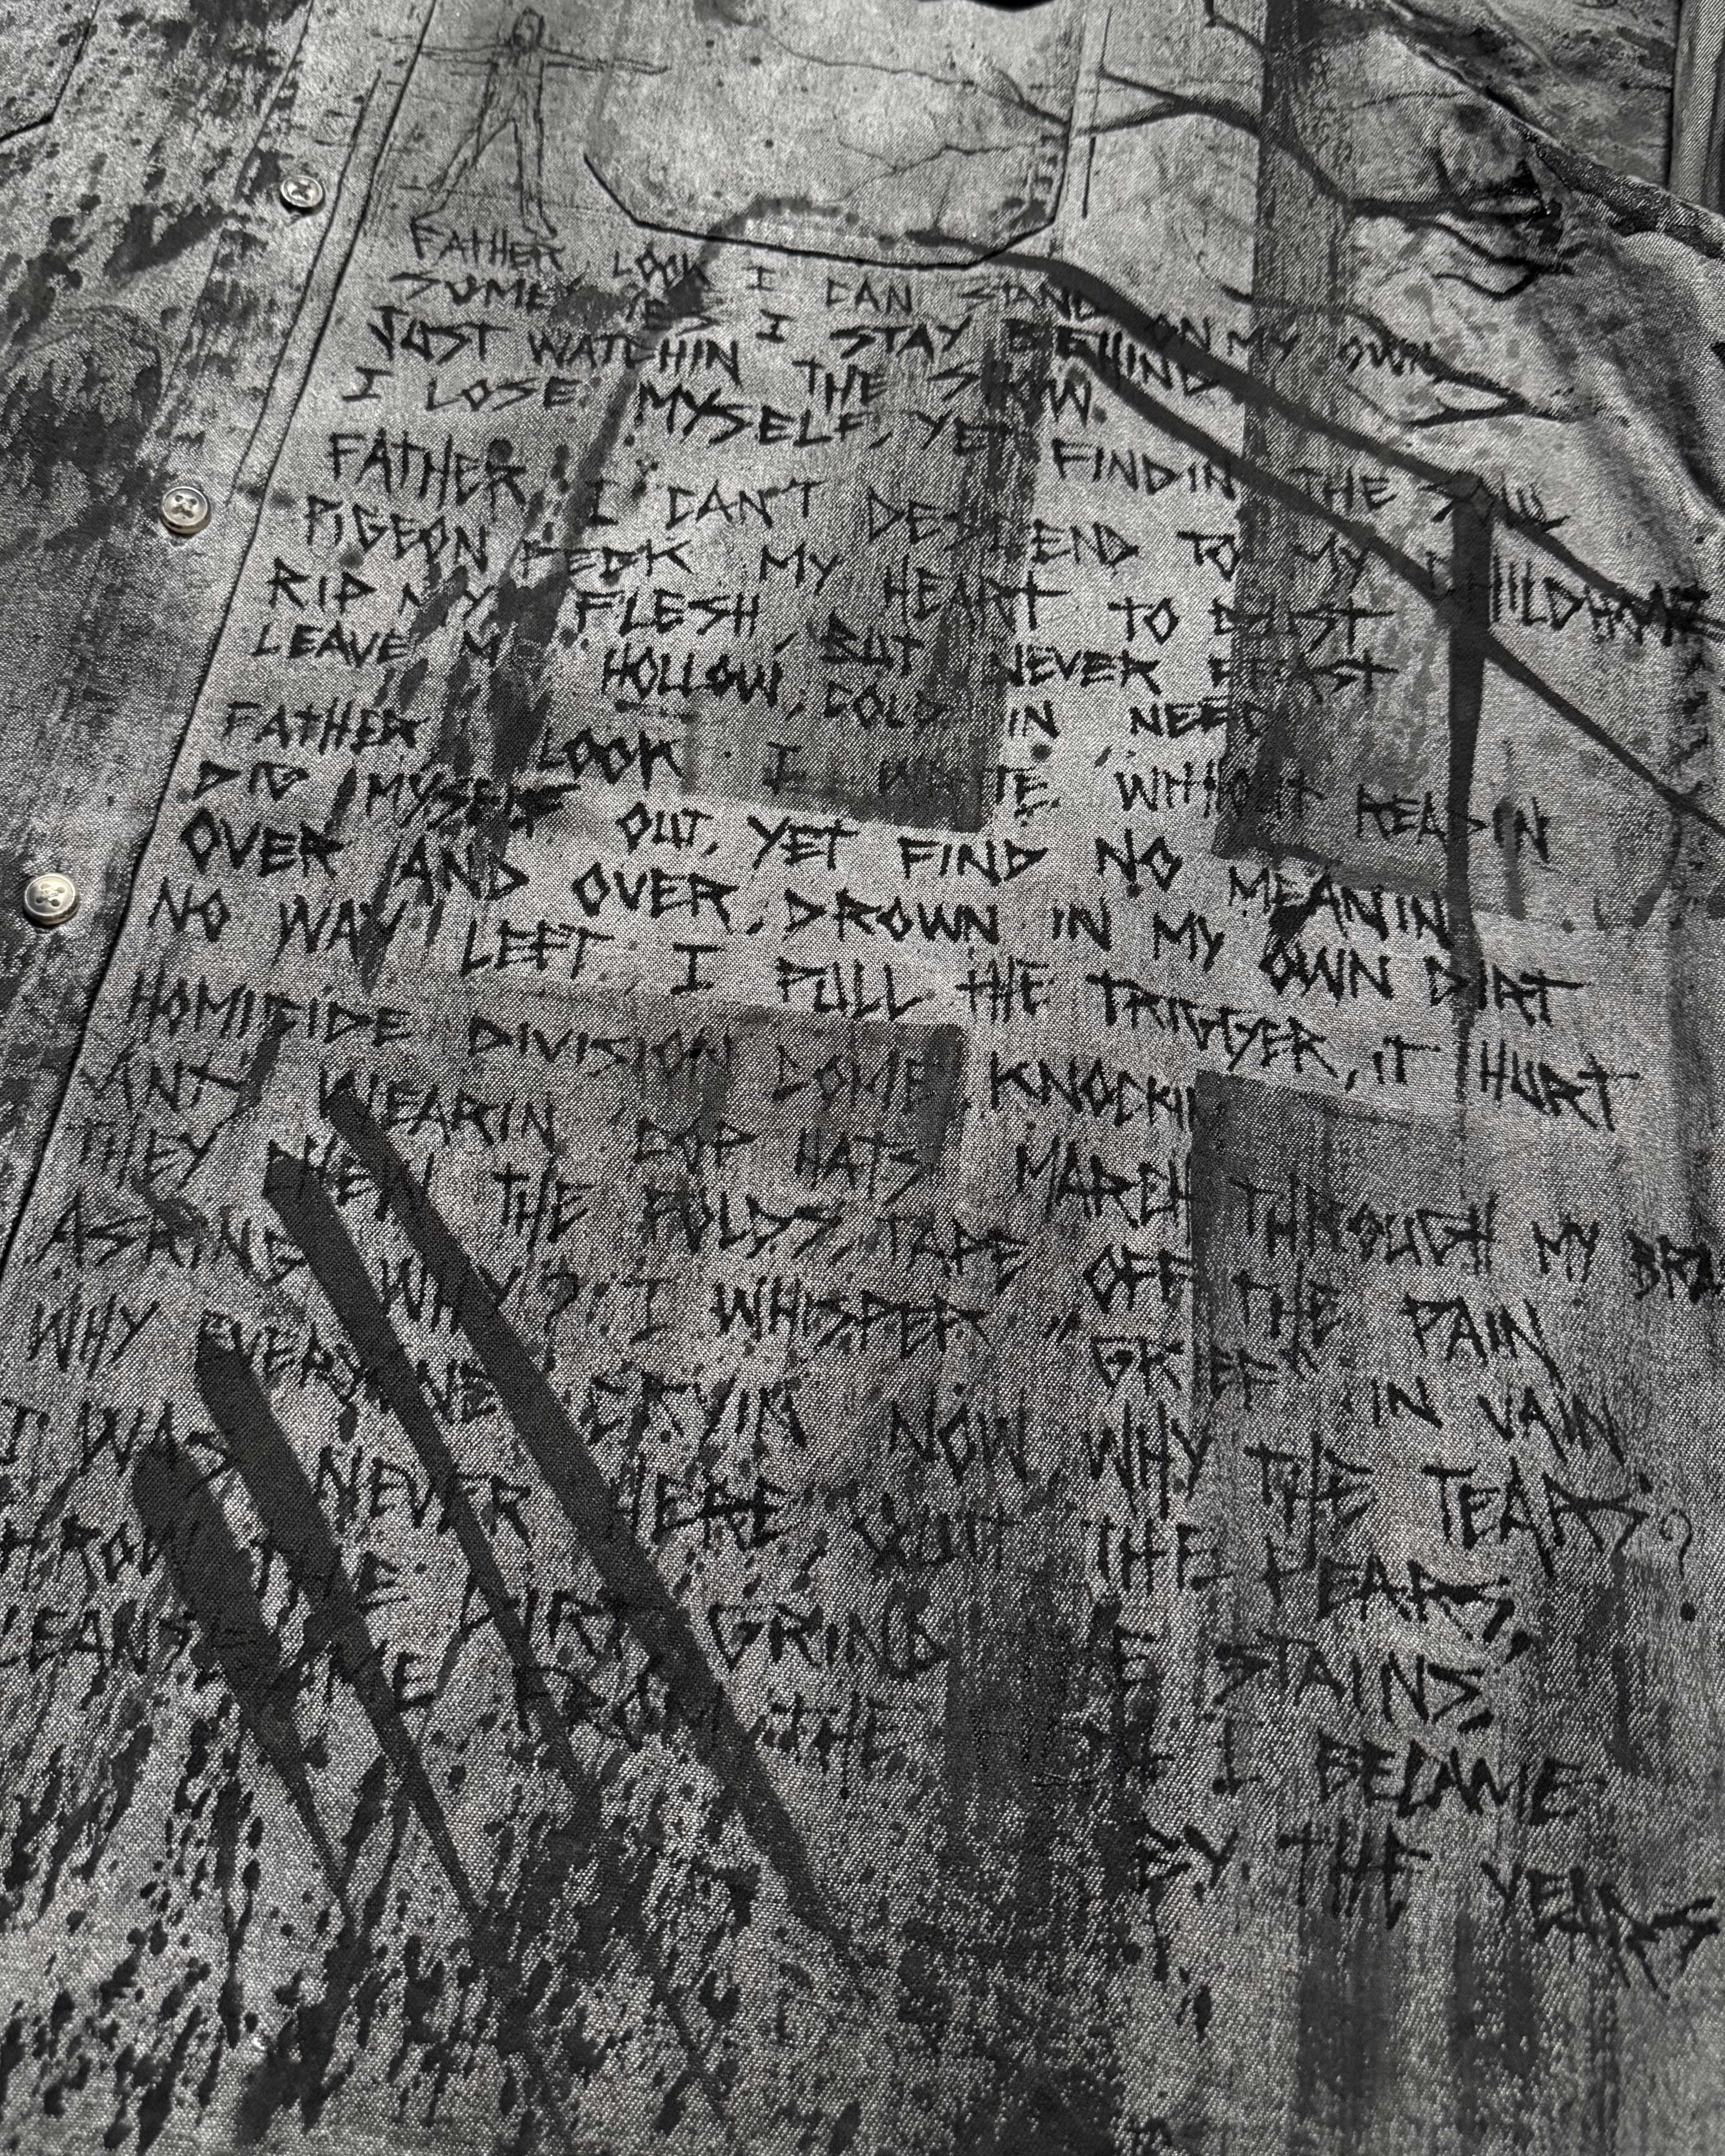 FATHER LOOK I CAN STAND ON MY OWN
I STAY BEHIND
JUST WATCHIN THE SHOW.
I LOSE MYSELF, YET FINDIN THE
FATHER I CAN'T DESCEND TO MY CHILDHOOD
PIGEON PECK MY HEART TO DUST
RIP MY FLESH, BUT NEVER
LEAVE ME HOLLOW, COLD IN NEED
FATHER LOOK I WRITE WITHOUT READIN
DIG MYSELF OUT, YET FIND NO MEANIN
OVER AND OVER, DROWN IN MY OWN DIRT
NO WAY LEFT I PULL THE TRIGGER, IT HURT
HOMICIDE DIVISION COME KNOCKIN
WEARIN COP HATS MARCH THROUGH MY
THEY THE FOLDS, TAPE OFF THE PAIN
ASKING WHY? I WHISPER, IN VAIN
WHY EVERYONE CRYIN NOW, WHY THE TEARS?
I WAS NEVER HERE, QUIT THE FEARS,
THE DIRT, GRIND THE STAINS,
ME FROM THE I BECAME
BY THE YEARS